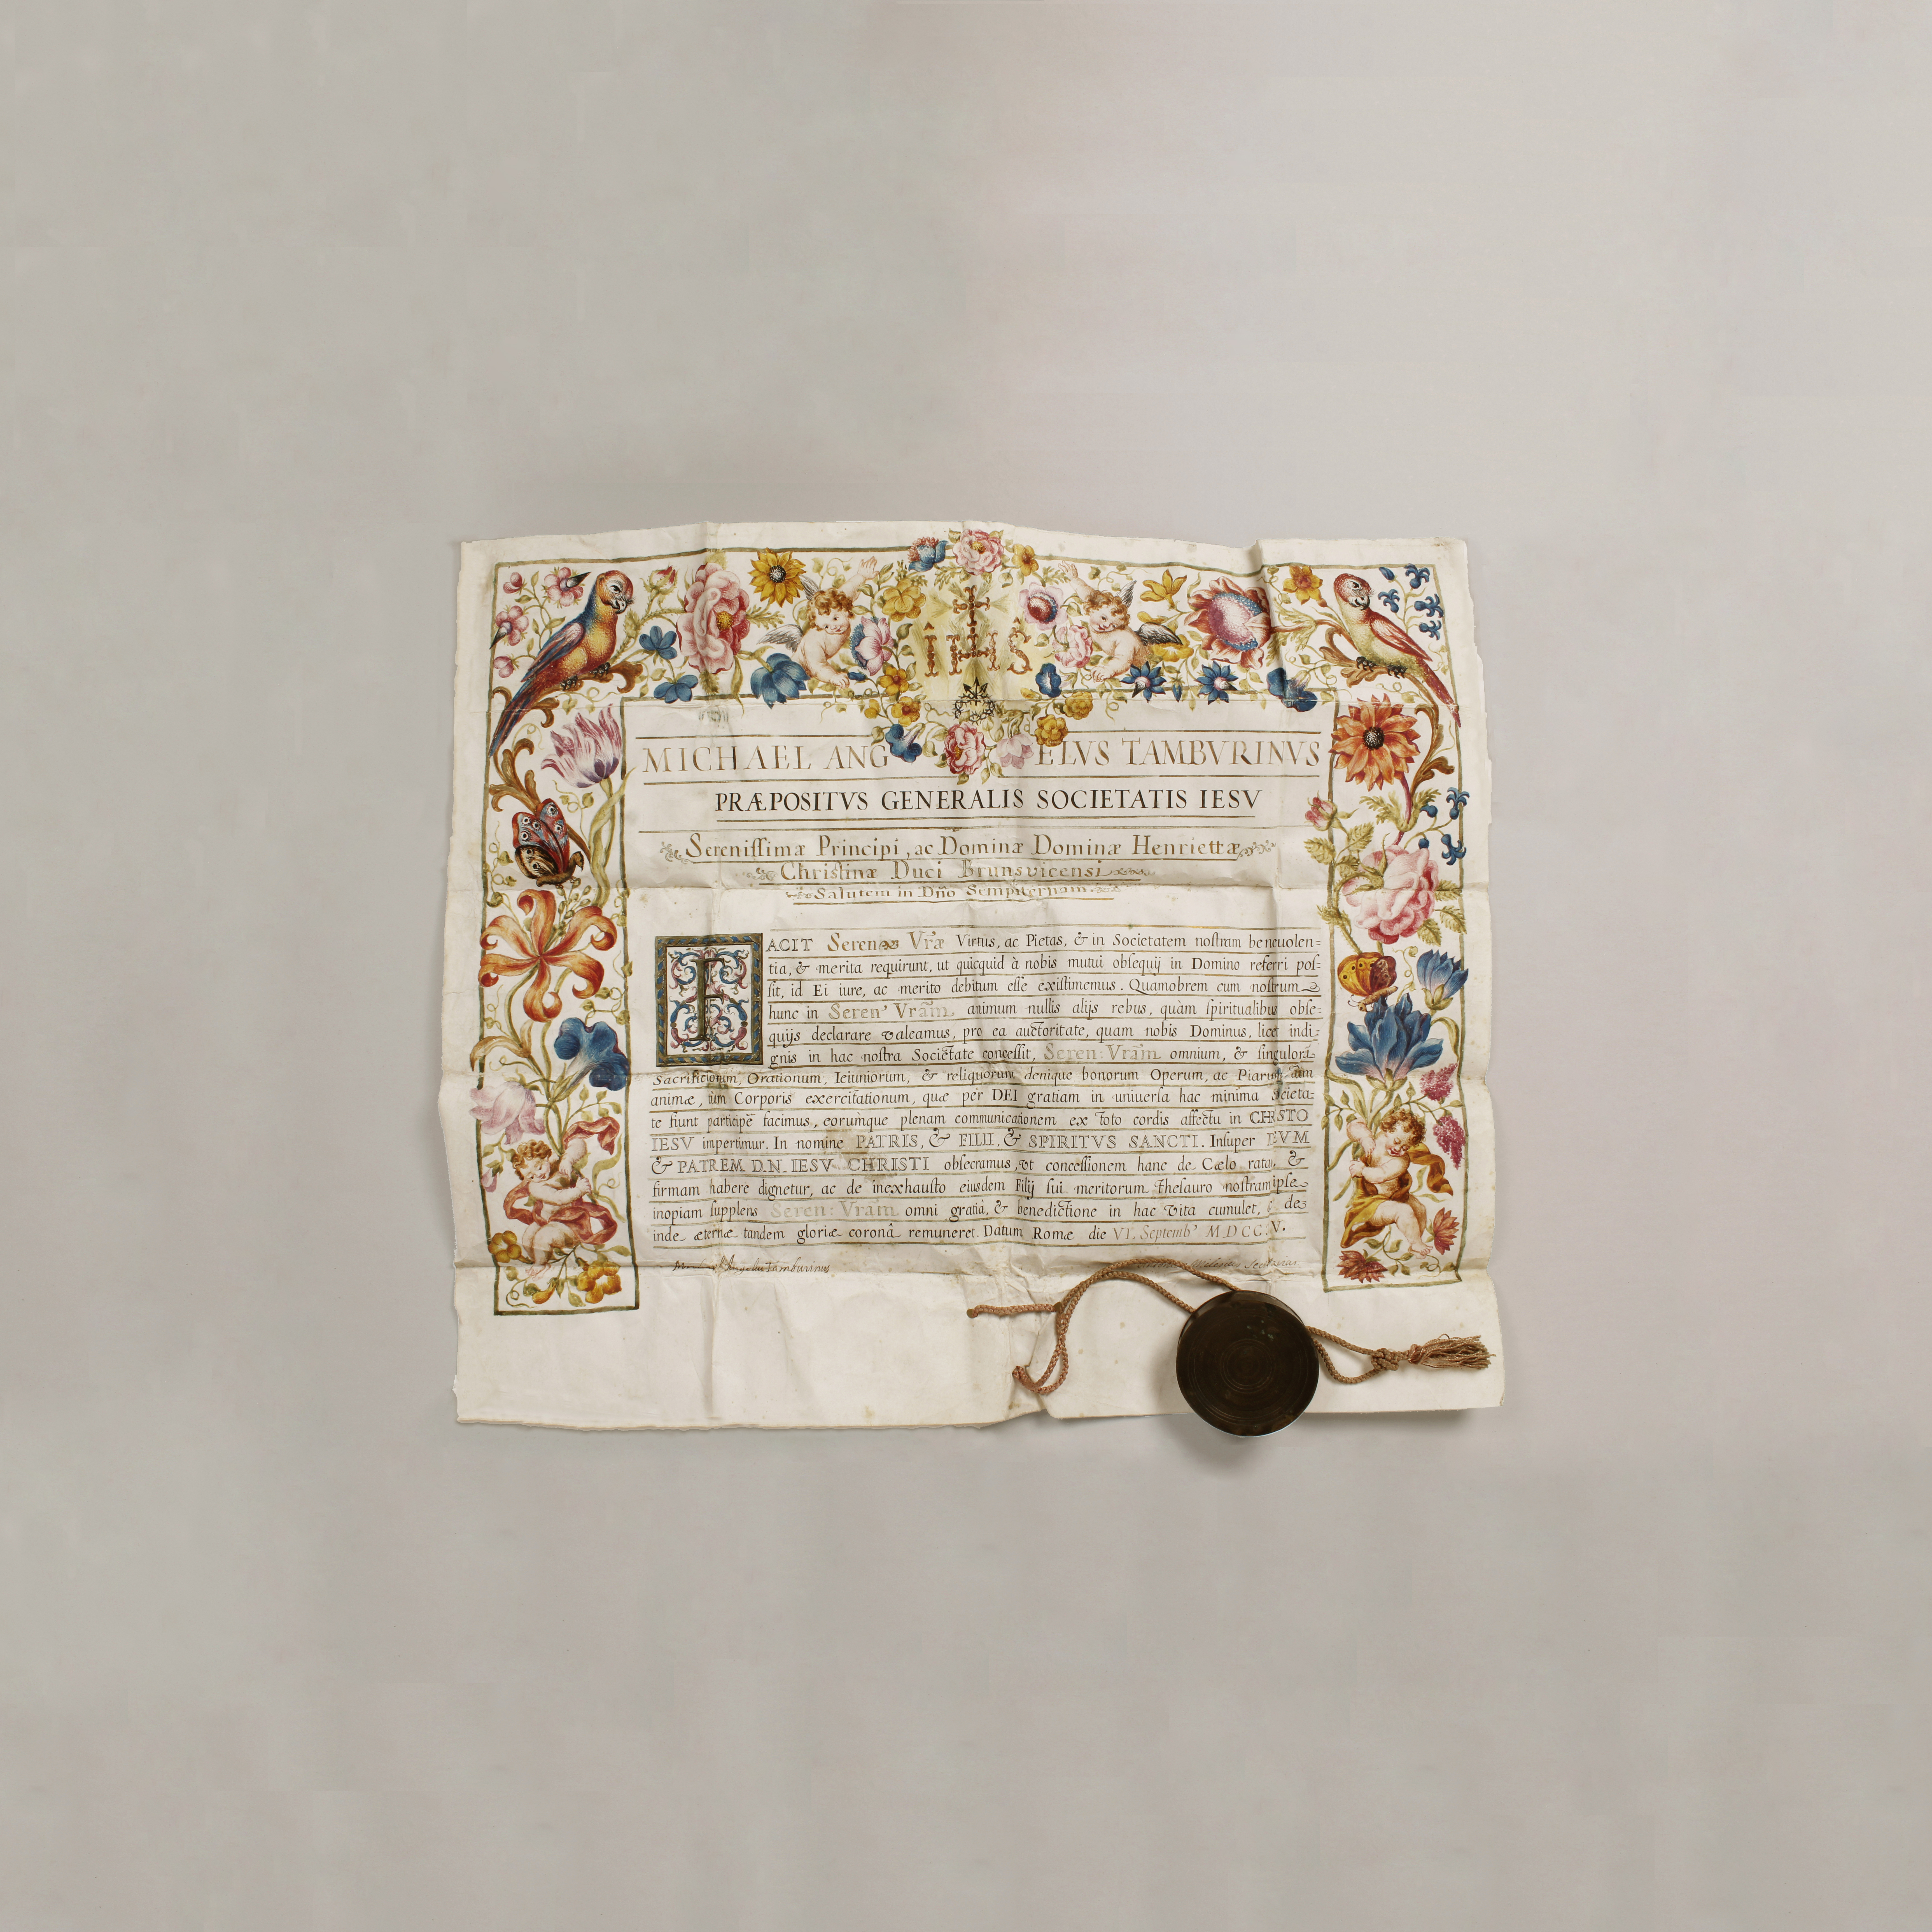 IHS
MICHAEL ANGELVS TAMBVRINVS
PRÆPOSITVS GENERALIS SOCIETATIS IESV
Sereniſſimæ Principi, ac Dominæ Dominæ Henriettæ
Christinæ Duci Brunsvicensi
Salutem in Dño Sempiternam
FACIT Serenæ Vræ Virtus, ac Pietas, & in Societatem noſtram beneuolen=
tia, & merita requirunt, ut quicquid à nobis mutui obſequij in Domino referri poſ=
ſit, id Ei iure, ac merito debitum eſſe exiſtimemus. Quamobrem cum noſtrum
hunc in Seren' Vram̃ animum nullis alijs rebus, quàm ſpiritualibus obſe=
quijs declarare valeamus, pro ea auctoritate, quam nobis Dominus, licet indi=
gnis in hac noſtra Societate conceſſit, Seren: Vram̃ omnium, & ſingulorũ
Sacrificiorum, Orationum, Ieiuniorum, & reliquorum denique bonorum Operum, ac Piarum, tum
animæ, tum Corporis exercitationum, quæ per DEI gratiam in uniuerſa hac minima Societa=
te fiunt participẽ facimus, eorumque plenam communicationem ex toto cordis affectu in CHRISTO
IESV impertimur. In nomine PATRIS, & FILII, & SPIRITVS SANCTI. Inſuper DEVM
& PATREM D.N. IESV CHRISTI obſecramus, vt conceſſionem hanc de Cælo ratã, &
firmam habere dignetur, ac de inexhauſto eiusdem Filij ſui meritorum Theſauro noſtram ipſe
inopiam ſupplens Seren: Vram̃ omni gratiâ, & benedictione in hac vita cumulet, & de=
inde æternæ tandem gloriæ coronâ remuneret. Datum Romæ die VI. Septemb' MDCCV.
Michael Angelus Tamburinus Secretar.